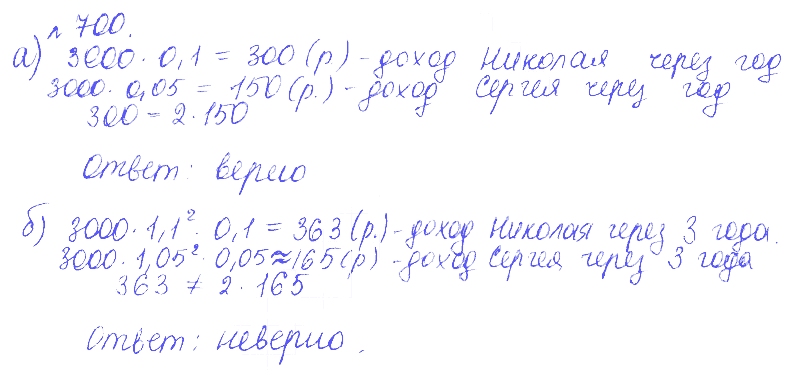 № 700.
а) 3000 · 0,1 = 300 (р) - доход Николая через год
3000 · 0,05 = 150 (р.) - доход Сергея через год
300 = 2 · 150
Ответ: верно
б) 3000 · 1,1² · 0,1 = 363 (р.) - доход Николая через 3 года.
3000 · 1,05² · 0,05 ≈ 165 (р) - доход Сергея через 3 года
363 ≠ 2 · 165
Ответ: неверно.